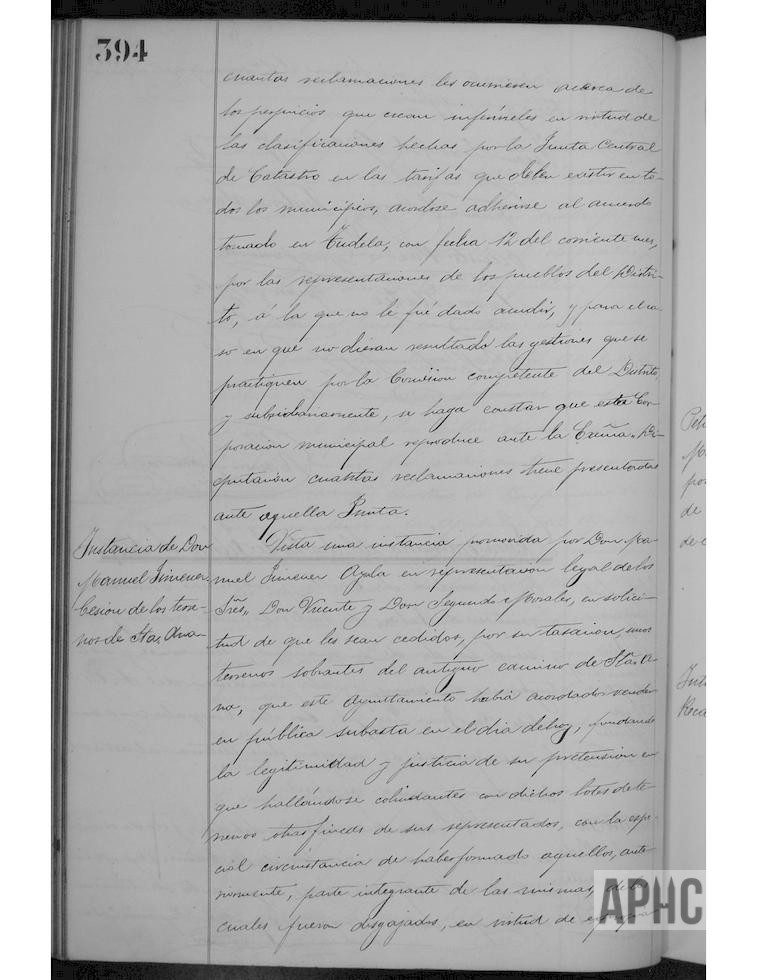 394
cuantas reclamaciones les ocurriesen acerca de
los perjuicios que crean inferírseles en virtud de
las clasificaciones hechas por la Junta Central
de Catastro en las tarifas que deben existir en to-
dos los municipios, acordose adherirse al acuerdo
tomado en Tudela, con fecha 12 del corriente mes,
por las representaciones de los pueblos del Distri-
to, á la que no le fué dado acudir, y para el ca-
so en que no dieran resultado las gestiones que se
practiquen por la Comisión competente del Distrito,
y subsidiariamente, se haga constar que esta Cor-
poración municipal reproduce ante la Excma. Di-
putación cuantas reclamaciones tiene presentadas
ante aquella Junta.
Instancia de Don
Manuel Jimenez.
Cesion de los terre-
nos de Sta. Ana-
Vista una instancia promovida por Don Ma-
nuel Jimenez Ayala en representación legal de los
Sres. Don Vicente y Don Segundo Morales, en solici-
tud de que les sean cedidos, por su tasación, unos
terrenos sobrantes del antiguo camino de Sta. A-
na, que este Ayuntamiento había acordado vender
en pública subasta en el dia de hoy, fundando
la legitimidad y justicia de su pretension en
que hallándose colindantes con dichos lotes de te-
rrenos otras fincas de sus representados, con la espe-
cial circunstancia de haber formado aquellos, ante-
riormente, parte integrante de las mismas, de las
cuales fueron desgajados, en virtud de expropia-
Pet
por
de
Inst
Reca
APHC